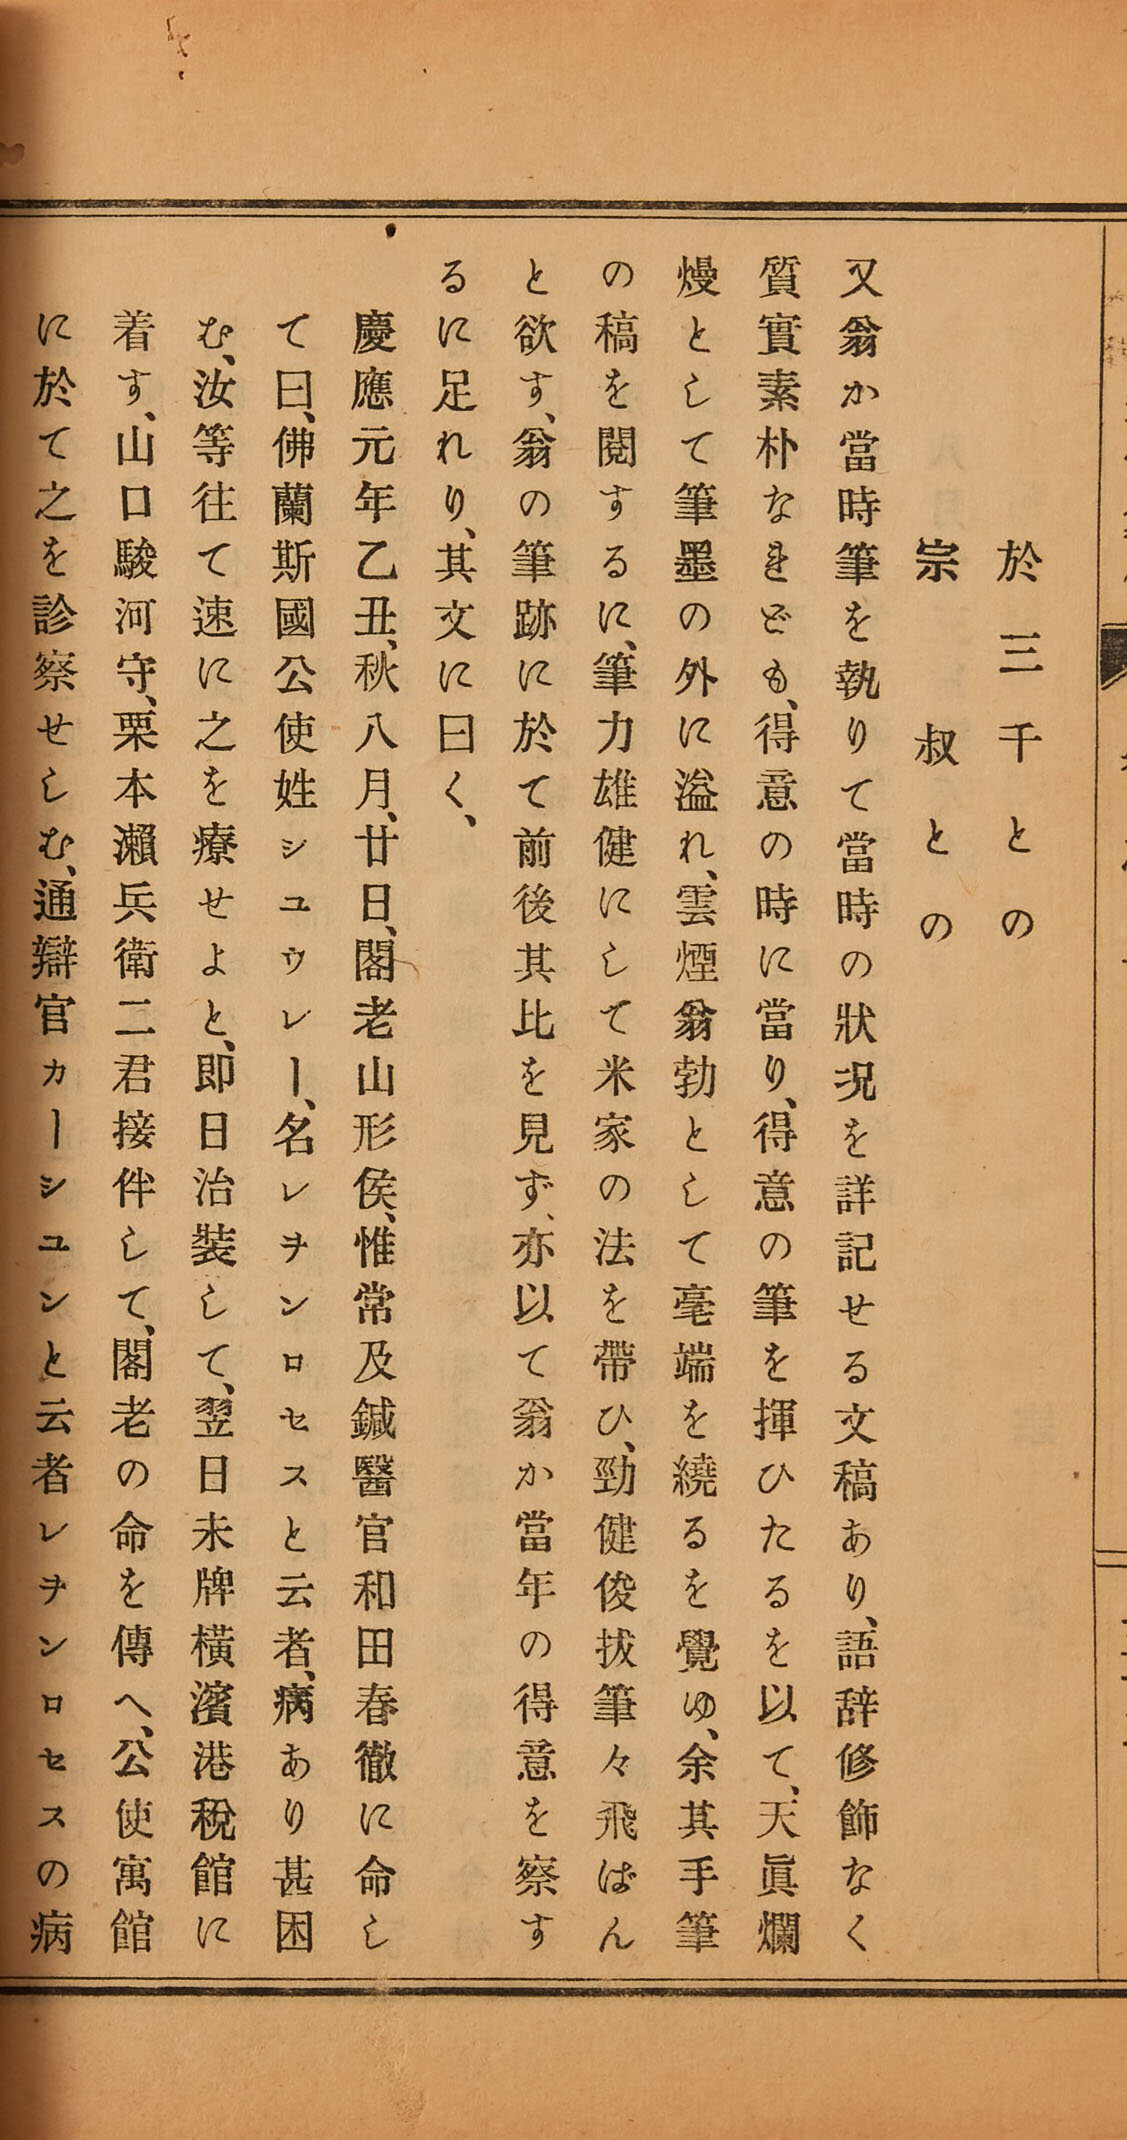 於三千との
宗叔との
又翁か當時筆を執りて當時の狀況を詳記せる文稿あり、語辞修飾なく
質實素朴なれども、得意の時に當り、得意の筆を揮ひたるを以て、天眞爛
熳として筆墨の外に溢れ、雲煙翁勃として毫端を繞るを覺ゆ、余其手筆
の稿を閱するに、筆力雄健にして米家の法を帶ひ、勁健俊拔筆々飛ばん
と欲す、翁の筆跡に於て前後其比を見ず、亦以て翁か當年の得意を察す
るに足れり、其文に曰く、
慶應元年乙丑、秋八月、廿日、閣老山形侯、惟常及鍼醫官和田春徹に命し
て曰、佛蘭斯國公使姓シユウレー、名レヲンロセスと云者、病あり甚困
む、汝等往て速に之を療せよと、即日治裝して、翌日未牌橫濱港稅館に
着す、山口駿河守、栗本瀨兵衛二君接伴して、閣老の命を傳へ、公使寓館
に於て之を診察せしむ、通辯官カーシユンと云者レヲンロセスの病